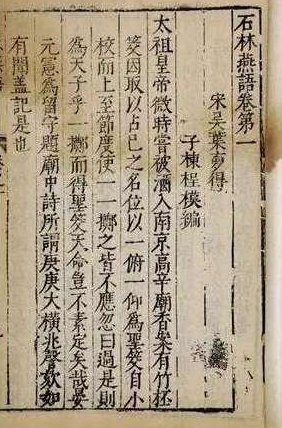 石林燕語卷第一
宋吳葉夢得
子棟桯模編
太祖皇帝微時嘗被酒入南京高辛廟香案有竹桮
筊因取以占己之名位以一俯一仰爲聖筊自小
校而上至節度使一一擲之皆不應忽曰過是則
爲天子乎一擲而得聖筊天命豈不素定矣哉晏
元憲爲留守題廟中詩所謂庚庚大横兆聲欬如
有聞蓋記是也